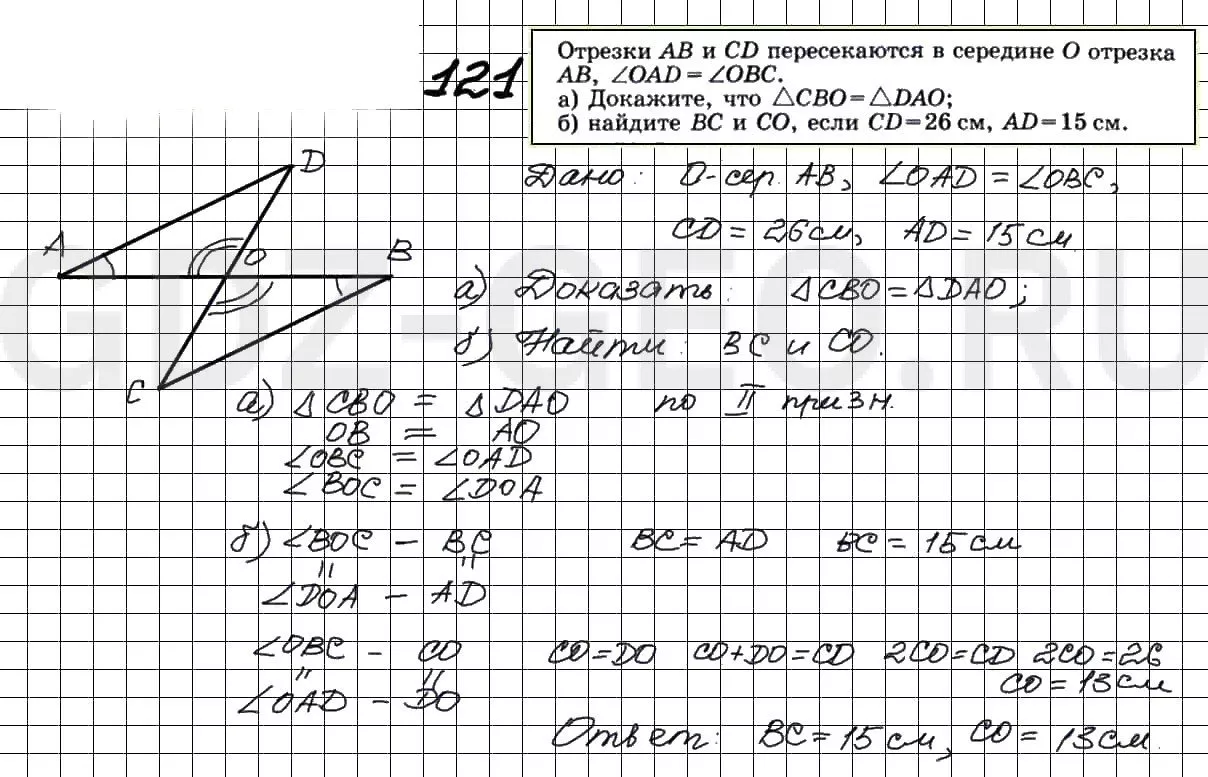 121
Отрезки AB и CD пересекаются в середине O отрезка
AB, ∠OAD = ∠OBC.
а) Докажите, что △CBO = △DAO;
б) найдите BC и CO, если CD = 26 см, AD = 15 см.
Дано: O-сер. AB, ∠OAD = ∠OBC,
CD = 26 см, AD = 15 см
а) Доказать: △CBO = △DAO;
б) Найти: BC и CO.
D
A
O
B
C
GDZ-GEO.RU
а) △CBO = △DAO по II призн.
OB = AO
∠OBC = ∠OAD
∠BOC = ∠DOA
б) ∠BOC – BC BC = AD BC = 15 см
" "
∠DOA – AD
∠OBC – CO CO = DO CO + DO = CD 2CO = CD 2CO = 26
" "
CO = 13 см
∠OAD – DO
Ответ: BC = 15 см, CO = 13 см.